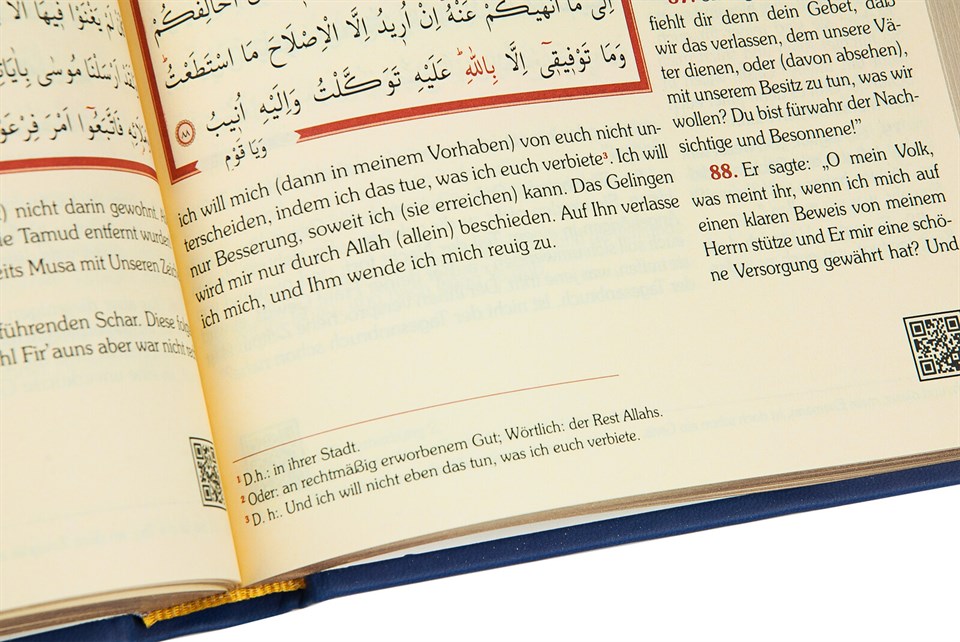 إِلَى مَا أَنْهٰيكُمْ عَنْهُ إِنْ أُرِيدُ إِلَّا الْإِصْلَاحَ مَا اسْتَطَعْتُ
وَمَا تَوْفِيقِٓى إِلَّا بِاللّٰهِ عَلَيْهِ تَوَكَّلْتُ وَإِلَيْهِ أُنِيبُ ٨٨
وَيَا قَوْمِ
ich will mich (dann in meinem Vorhaben) von euch nicht un-
terscheiden, indem ich das tue, was ich euch verbiete³. Ich will
nur Besserung, soweit ich (sie erreichen) kann. Das Gelingen
wird mir nur durch Allah (allein) beschieden. Auf Ihn verlasse
ich mich, und Ihm wende ich mich reuig zu.
¹ D.h.: in ihrer Stadt.
² Oder: an rechtmäßig erworbenem Gut; Wörtlich: der Rest Allahs.
³ D. h:. Und ich will nicht eben das tun, was ich euch verbiete.
fiehlt dir denn dein Gebet, daß
wir das verlassen, dem unsere Vä-
ter dienen, oder (davon absehen),
mit unserem Besitz zu tun, was wir
wollen? Du bist fürwahr der Nach-
sichtige und Besonnene!"
88. Er sagte: „O mein Volk,
was meint ihr, wenn ich mich auf
einen klaren Beweis von meinem
Herrn stütze und Er mir eine schö-
ne Versorgung gewährt hat? Und
nicht darin gewohnt.
Tamud entfernt
Musa mit Unseren
führenden Schar. Diese
Fir'auns aber war nicht